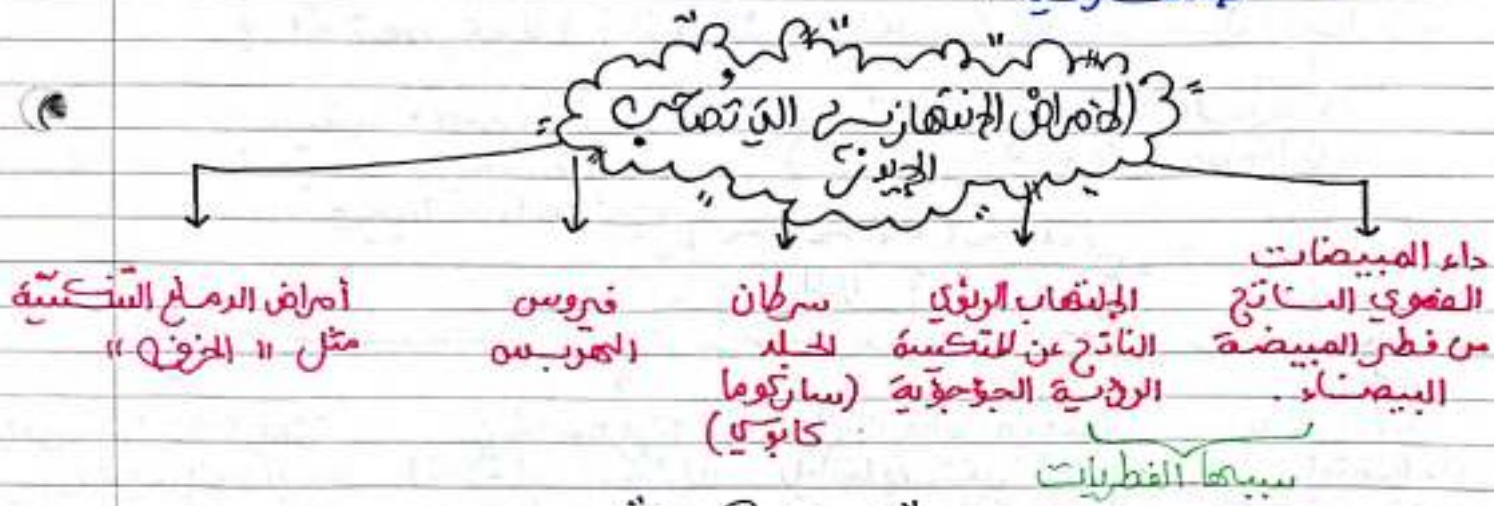 الأمراض الإنتهازية التي تُصاحب
الإيدز
داء المبيضات
الفموي الناتج
من فطر المبيضة
البيضاء.
الإلتهاب الرئوي
الناتج عن المتكيسة
الرئوية الجؤجؤية
سرطان
الجلد
(ساركوما
كابوسي)
فيروس
الهربس
أمراض الدماغ التنكسيّة
مثل "الخرف"
سببها الفطريات